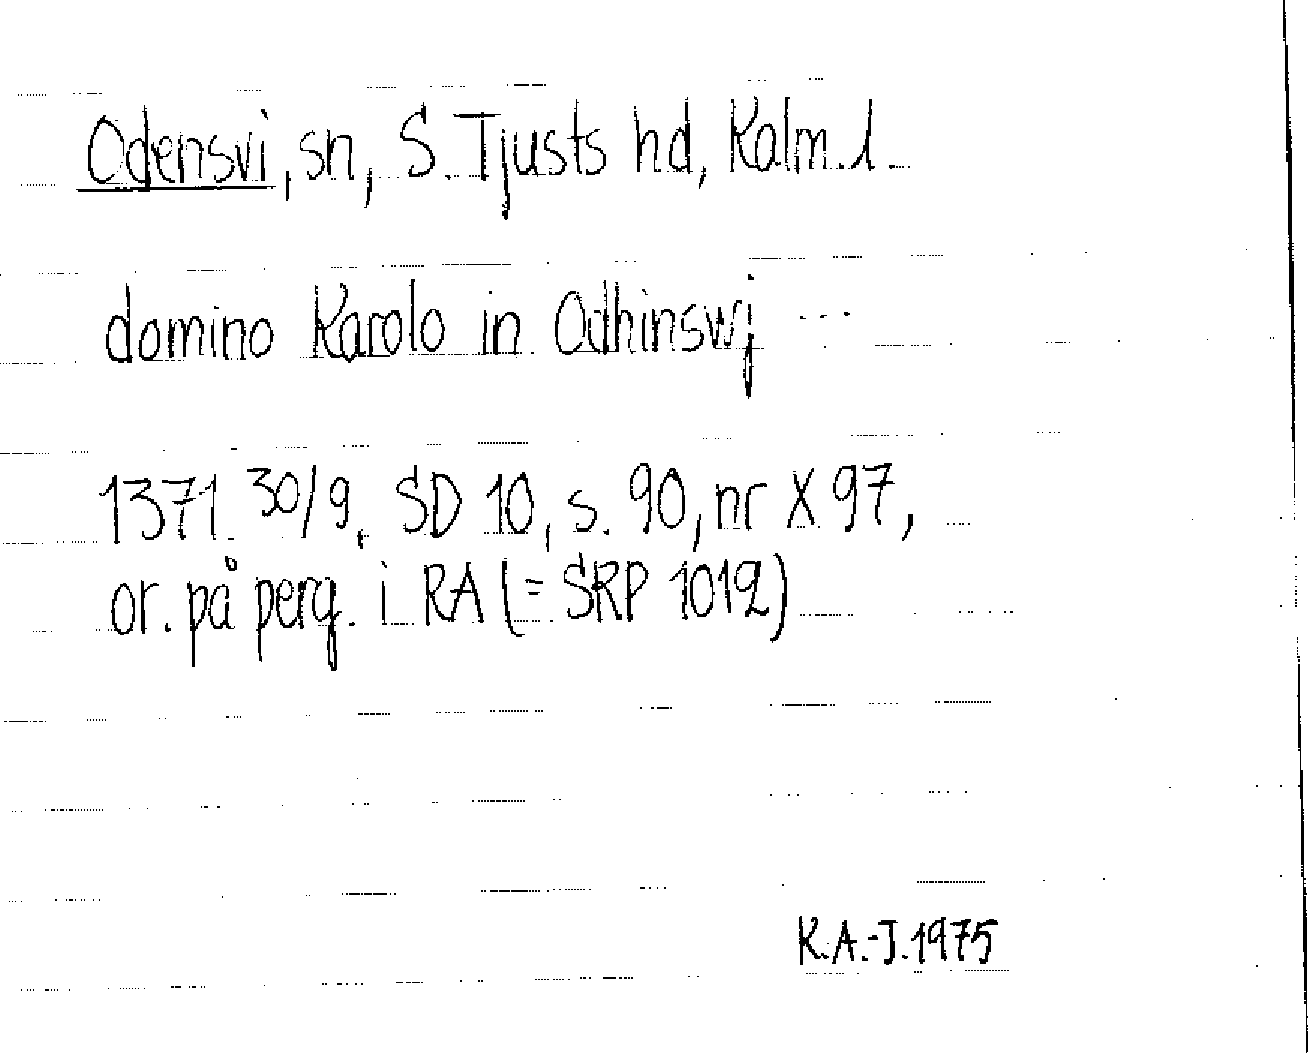 Odensvi, sn, S. Tjusts hd, Kalm. l.
domino Karolo in Odhinswj ---
1371 30/9, SD 10, s. 90, nr X 97,
or. på perg. i RA (= SRP 1012)
K.A.-J. 1975